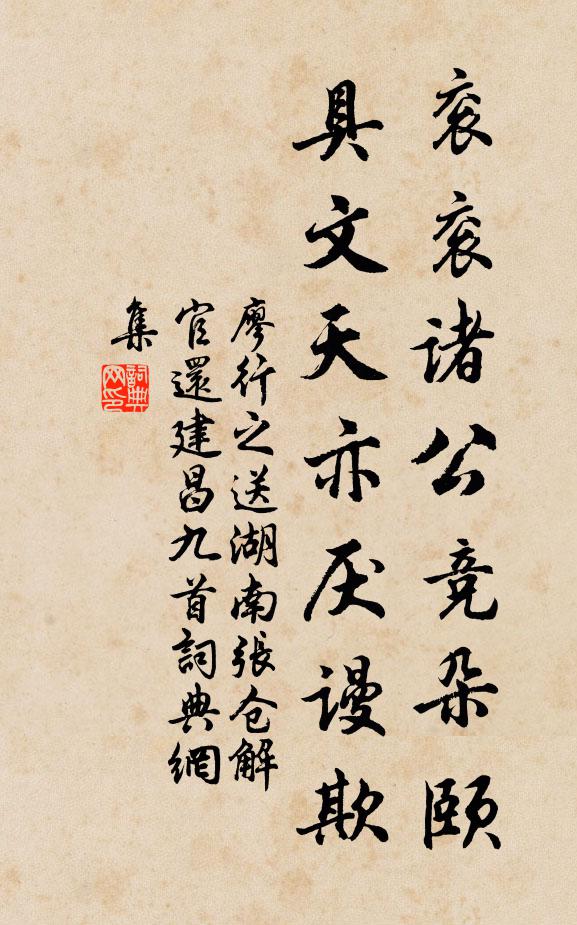 衮衮诸公竞朵颐
具文天亦厌谩欺
廖行之送湖南張仓解
官還建昌九首詞典網
集
詞典
网印